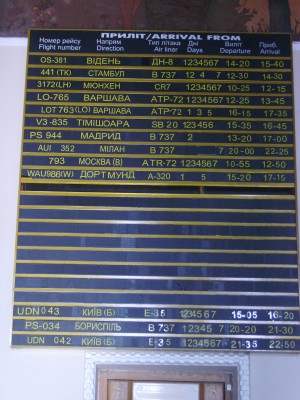 ПРИЛІТ/ARRIVAL FROM
Номер рейсу Напрям Тип літака Дні Виліт Приб.
Flight number Direction Air liner Days Departure Arrival
OS-381 ВІДЕНЬ ДН-8 1234567 14-20 15-40
441 (TK) СТАМБУЛ B 737 12 4 7 12-30 14-30
3172(LH) МЮНХЕН CR7 1234567 10-25 12-15
LO-765 ВАРШАВА ATP-72 1234567 12-25 13-45
LOT 763(LO) ВАРШАВА ATP-72 1 3 5 16-15 17-35
V3-835 ТІМІШОАРА SB 20 123456 15-35 16-45
PS 944 МАДРИД B 737 2 13-20 17-00
AUI 352 МІЛАН B 737 7 20-00 22-25
793 МОСКВА (В) ATR-72 1234567 10-55 12-50
WAU986(W) ДОРТМУНД A-320 1 5 15-20 17-15
UDN 043 КИЇВ (Б) E-35 1234567 15-05 16-20
PS-034 БОРИСПІЛЬ B 737 12345 7 20-20 21-30
UDN 042 КИЇВ (Б) E-35 1234567 21-35 22-50